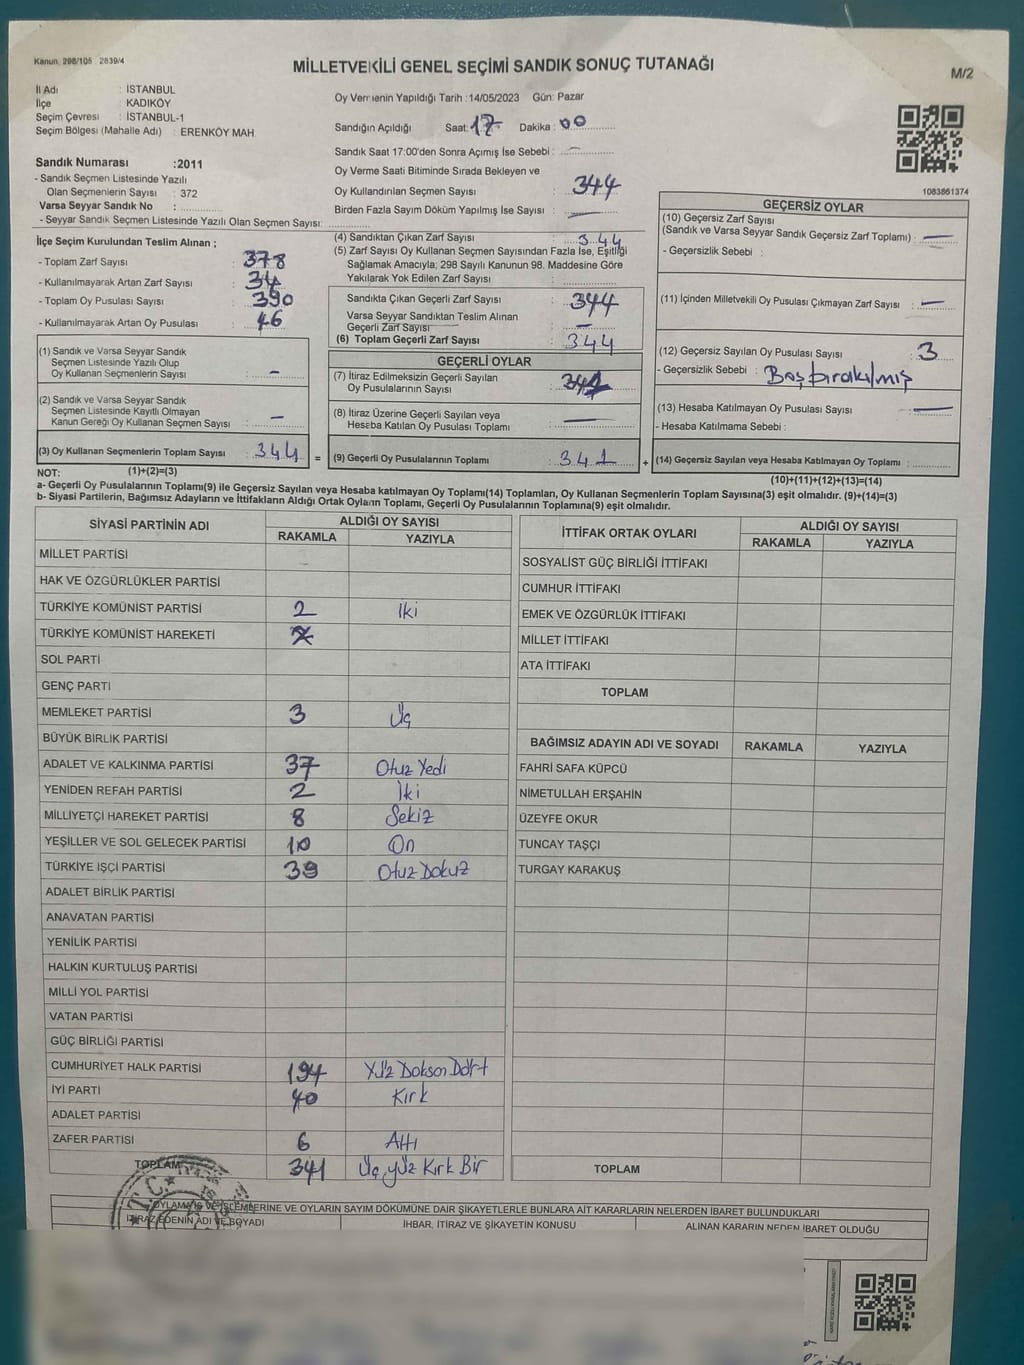 Kanun, 298/105 2839/4
MİLLETVEKİLİ GENEL SEÇİMİ SANDIK SONUÇ TUTANAĞI
M/2
İl Adı : İSTANBUL
İlçe : KADIKÖY
Seçim Çevresi : İSTANBUL-1
Seçim Bölgesi (Mahalle Adı) : ERENKÖY MAH
Sandık Numarası :2011
- Sandık Seçmen Listesinde Yazılı
Olan Seçmenlerin Sayısı : 372
Varsa Seyyar Sandık No :
- Seyyar Sandık Seçmen Listesinde Yazılı Olan Seçmen Sayısı:
Oy Vermenin Yapıldığı Tarih :14/05/2023 Gün: Pazar
Sandığın Açıldığı Saat: 17 Dakika : 00
Sandık Saat 17:00'den Sonra Açımış İse Sebebi : —
Oy Verme Saati Bitiminde Sırada Bekleyen ve
Oy Kullandırılan Seçmen Sayısı : 344
Birden Fazla Sayım Döküm Yapılmış İse Sayısı : —
1083861374
İlçe Seçim Kurulundan Teslim Alınan ;
- Toplam Zarf Sayısı : 378
- Kullanılmayarak Artan Zarf Sayısı : 34
- Toplam Oy Pusulası Sayısı : 390
- Kullanılmayarak Artan Oy Pusulası : 46
(1) Sandık ve Varsa Seyyar Sandık
Seçmen Listesinde Yazılı Olup
Oy Kullanan Seçmenlerin Sayısı : —
(2) Sandık ve Varsa Seyyar Sandık
Seçmen Listesinde Kayıtlı Olmayan
Kanun Gereği Oy Kullanan Seçmen Sayısı : —
(3) Oy Kullanan Seçmenlerin Toplam Sayısı : 344 =
(4) Sandıktan Çıkan Zarf Sayısı : 344
(5) Zarf Sayısı Oy Kullanan Seçmen Sayısından Fazla İse, Eşitliği
Sağlamak Amacıyla, 298 Sayılı Kanunun 98. Maddesine Göre
Yakılarak Yok Edilen Zarf Sayısı :
Sandıkta Çıkan Geçerli Zarf Sayısı : 344
Varsa Seyyar Sandıktan Teslim Alınan
Geçerli Zarf Sayısı : —
(6) Toplam Geçerli Zarf Sayısı : 344
GEÇERLİ OYLAR
(7) İtiraz Edilmeksizin Geçerli Sayılan
Oy Pusulalarının Sayısı : 341
(8) İtiraz Üzerine Geçerli Sayılan veya
Hesaba Katılan Oy Pusulaları Toplamı : —
(9) Geçerli Oy Pusulalarının Toplamı : 341 +
GEÇERSİZ OYLAR
(10) Geçersiz Zarf Sayısı
(Sandık ve Varsa Seyyar Sandık Geçersiz Zarf Toplamı) : —
- Geçersizlik Sebebi :
(11) İçinden Milletvekili Oy Pusulası Çıkmayan Zarf Sayısı : —
(12) Geçersiz Sayılan Oy Pusulası Sayısı : 3
- Geçersizlik Sebebi : Boş bırakılmış
(13) Hesaba Katılmayan Oy Pusulası Sayısı : —
- Hesaba Katılmama Sebebi :
(14) Geçersiz Sayılan veya Hesaba Katılmayan Oy Toplamı :
NOT: (1)+(2)=(3)
(10)+(11)+(12)+(13)=(14)
a- Geçerli Oy Pusulalarının Toplamı(9) ile Geçersiz Sayılan veya Hesaba katılmayan Oy Toplamı(14) Toplamları, Oy Kullanan Seçmenlerin Toplam Sayısına(3) eşit olmalıdır. (9)+(14)=(3)
b- Siyasi Partilerin, Bağımsız Adayların ve İttifakların Aldığı Ortak Oyların Toplamı, Geçerli Oy Pusulalarının Toplamına(9) eşit olmalıdır.
SİYASİ PARTİNİN ADI ALDIĞI OY SAYISI
RAKAMLA YAZIYLA
MİLLET PARTİSİ
HAK VE ÖZGÜRLÜKLER PARTİSİ
TÜRKİYE KOMÜNİST PARTİSİ 2 İki
TÜRKİYE KOMÜNİST HAREKETİ
SOL PARTİ
GENÇ PARTİ
MEMLEKET PARTİSİ 3 Üç
BÜYÜK BİRLİK PARTİSİ
ADALET VE KALKINMA PARTİSİ 37 Otuz Yedi
YENİDEN REFAH PARTİSİ 2 İki
MİLLİYETÇİ HAREKET PARTİSİ 8 Sekiz
YEŞİLLER VE SOL GELECEK PARTİSİ 10 On
TÜRKİYE İŞÇİ PARTİSİ 39 Otuz Dokuz
ADALET BİRLİK PARTİSİ
ANAVATAN PARTİSİ
YENİLİK PARTİSİ
HALKIN KURTULUŞ PARTİSİ
MİLLİ YOL PARTİSİ
VATAN PARTİSİ
GÜÇ BİRLİĞİ PARTİSİ
CUMHURİYET HALK PARTİSİ 194 Yüz Doksan Dört
İYİ PARTİ 40 Kırk
ADALET PARTİSİ
ZAFER PARTİSİ 6 Altı
TOPLAM 341 Üç yüz Kırk Bir
İTTİFAK ORTAK OYLARI ALDIĞI OY SAYISI
RAKAMLA YAZIYLA
SOSYALİST GÜÇ BİRLİĞİ İTTİFAKI
CUMHUR İTTİFAKI
EMEK VE ÖZGÜRLÜK İTTİFAKI
MİLLET İTTİFAKI
ATA İTTİFAKI
TOPLAM
BAĞIMSIZ ADAYIN ADI VE SOYADI RAKAMLA YAZIYLA
FAHRİ SAFA KÜPCÜ
NİMETULLAH ERŞAHİN
ÜZEYFE OKUR
TUNCAY TAŞÇI
TURGAY KARAKUŞ
TOPLAM
T.C.
OYLAMA İŞ VE İŞLEMLERİNE VE OYLARIN SAYIM DÖKÜMÜNE DAİR ŞİKAYETLERLE BUNLARA AİT KARARLARIN NELERDEN İBARET BULUNDUKLARI
İTİRAZ EDENİN ADI VE SOYADI İHBAR, İTİRAZ VE ŞİKAYETİN KONUSU ALINAN KARARIN NEDEN İBARET OLDUĞU